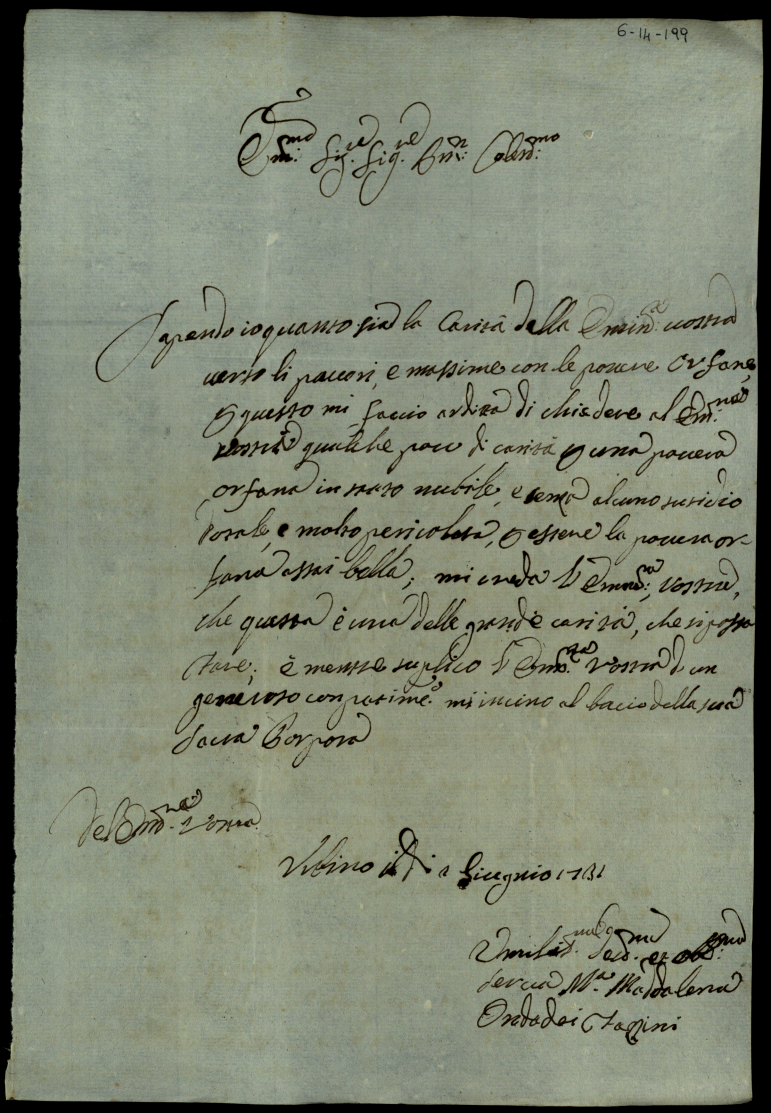 6-14-199
Em:mo Sig.re Sig.re Pn: Colend:mo
Sapendo io quanto sia la Carità della Emin:a vostra
verso li poveri, e massime con le povere Orfane,
p questo mi faccio ardita di chiedere al Em:nza
vostra qualche poco di carità p una povera
orfana in stato nubile, e senza alcuno susidio
dotale, e molto pericolosa, p essere la povera or-
fana assai bella; mi creda l'Emin:a vostra,
che questa è una delle grande carità, che si possa
fare; e mentre suplico l'Emin:za Vostra d un
generoso conpatime:o mi incino al bacio della sua
Sacra Porpora
Del Emi:nza Vostra
Urbino il di 2 Giugnio 1731
Umilis:ma Devo:ma et obb:ma
Serva M.a Maddalena
Ondadei